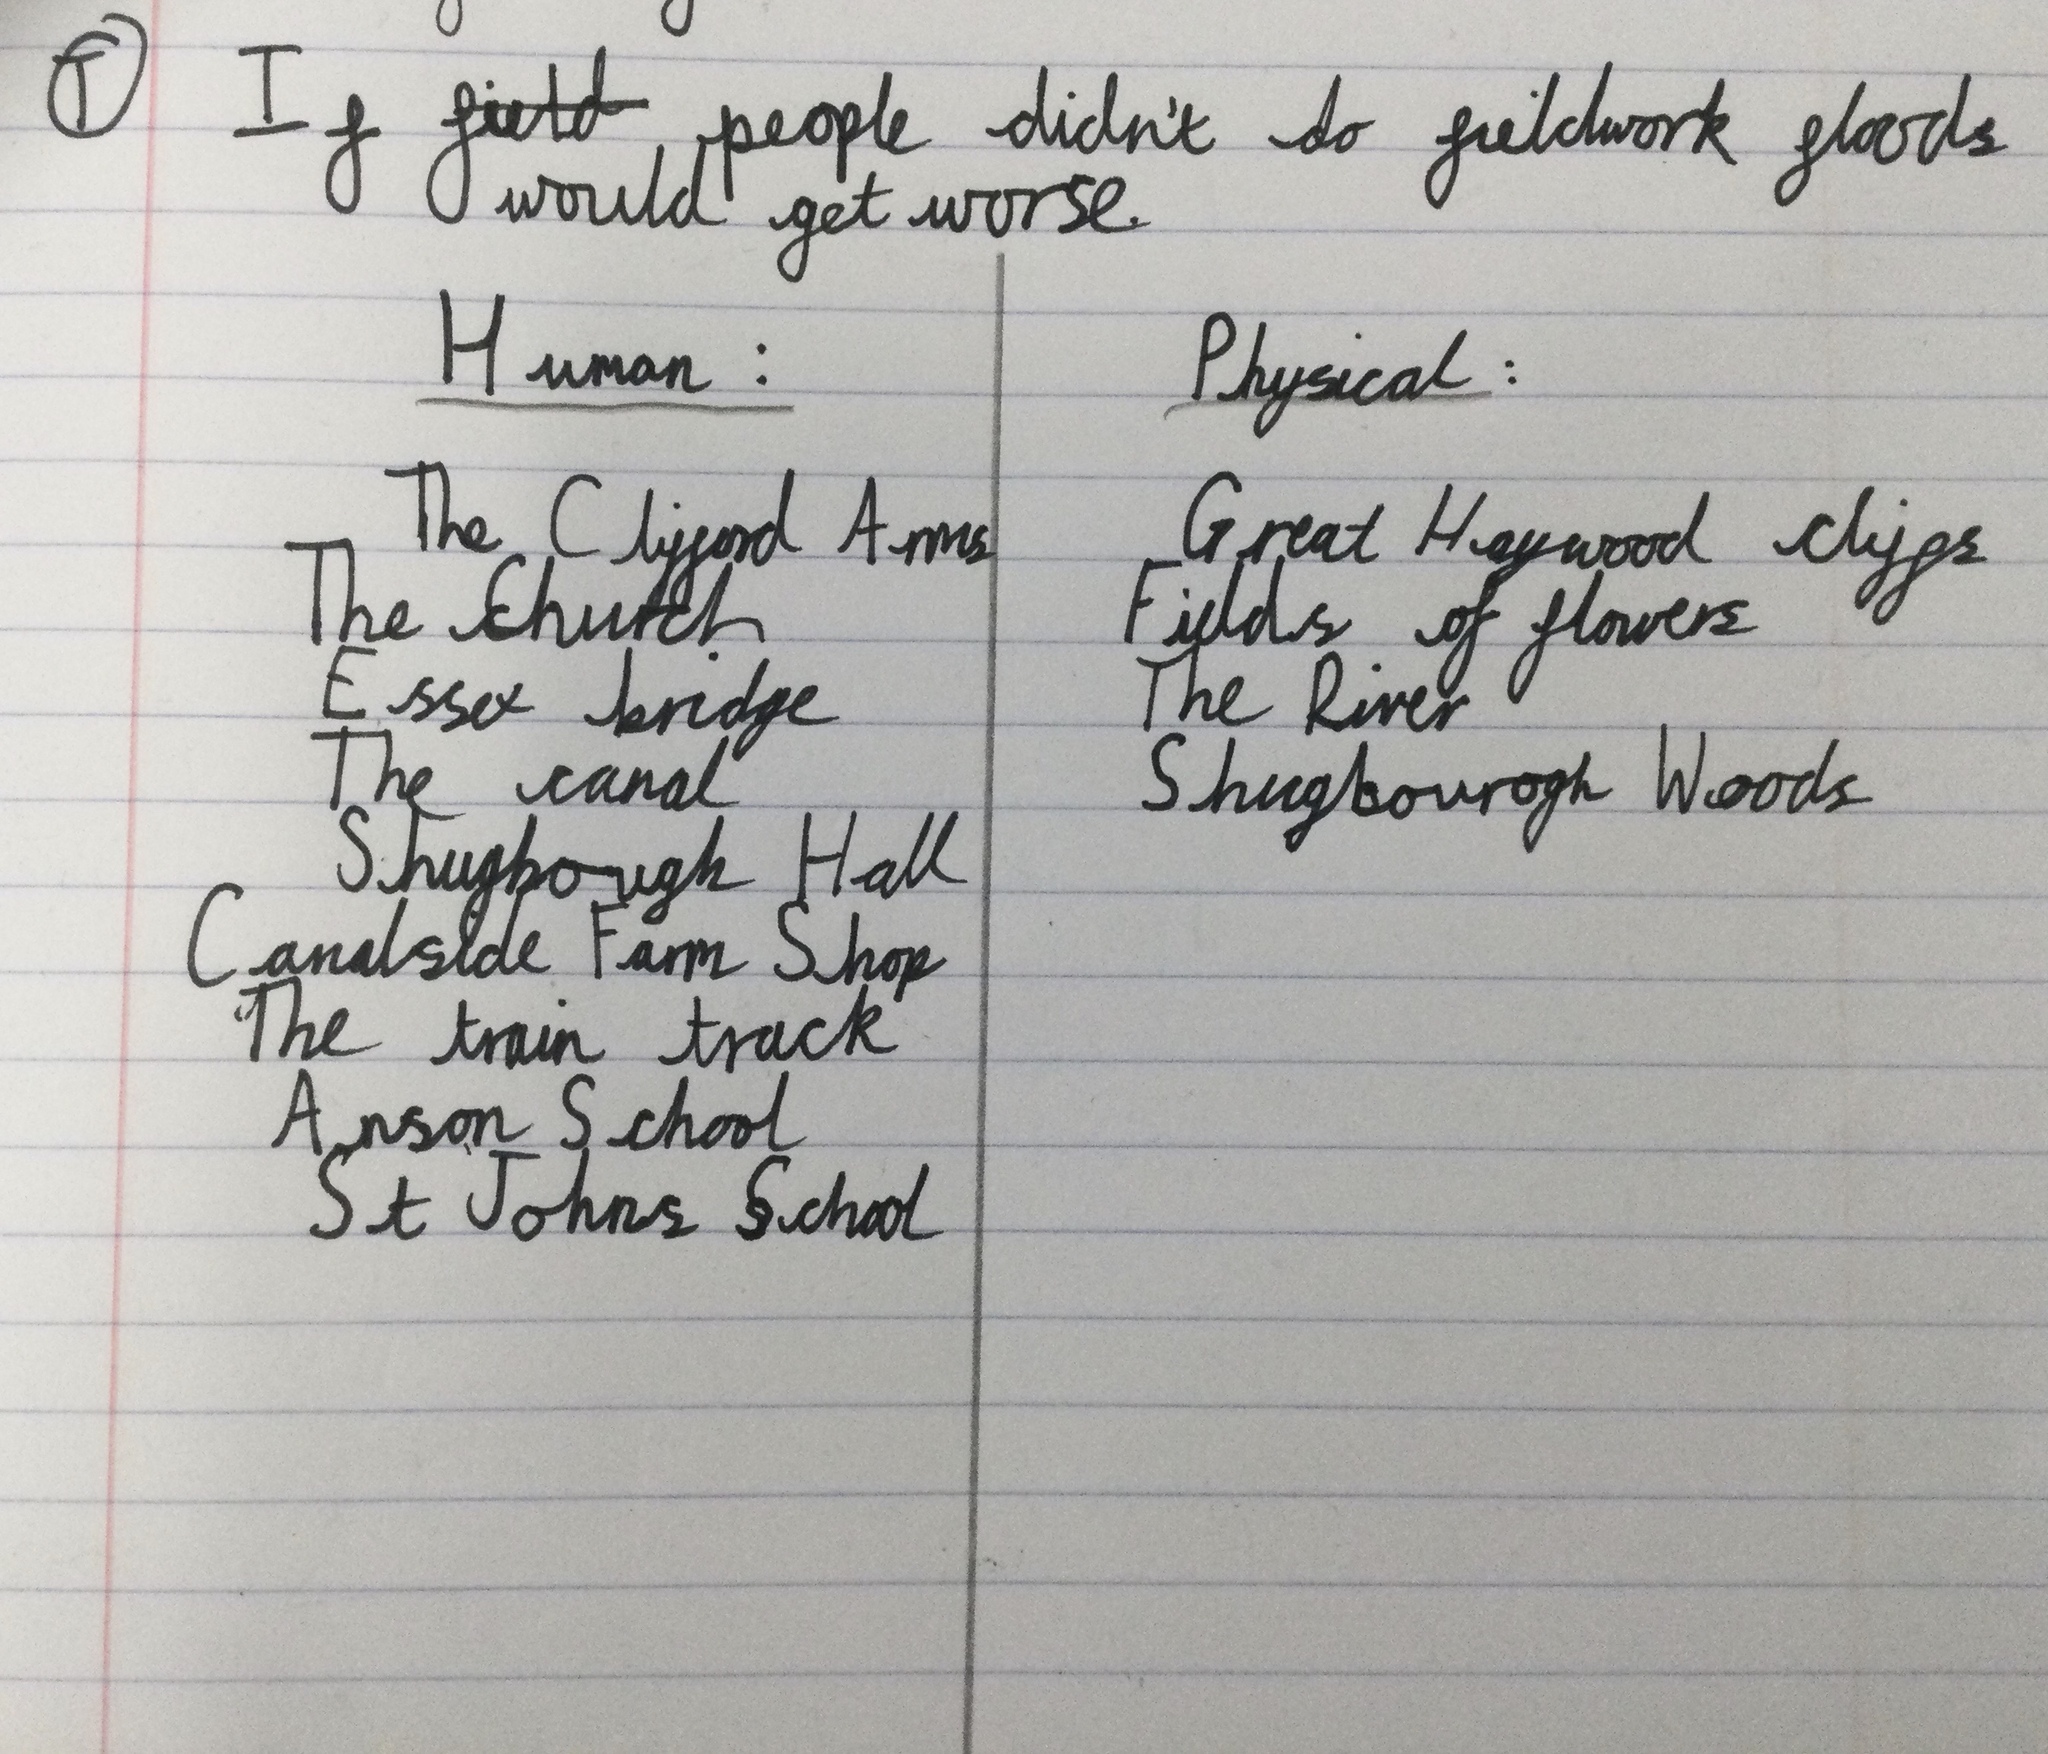 T If field people didn't do fieldwork floods
would get worse.
Human :
The Clifford Arms
The Church
Essex bridge
The canal
Shugbough Hall
Canalside Farm Shop
The train track
Anson School
St Johns School
Physical :
Great Haywood cliffs
Fields of flowers
The River
Shugbourogh Woods